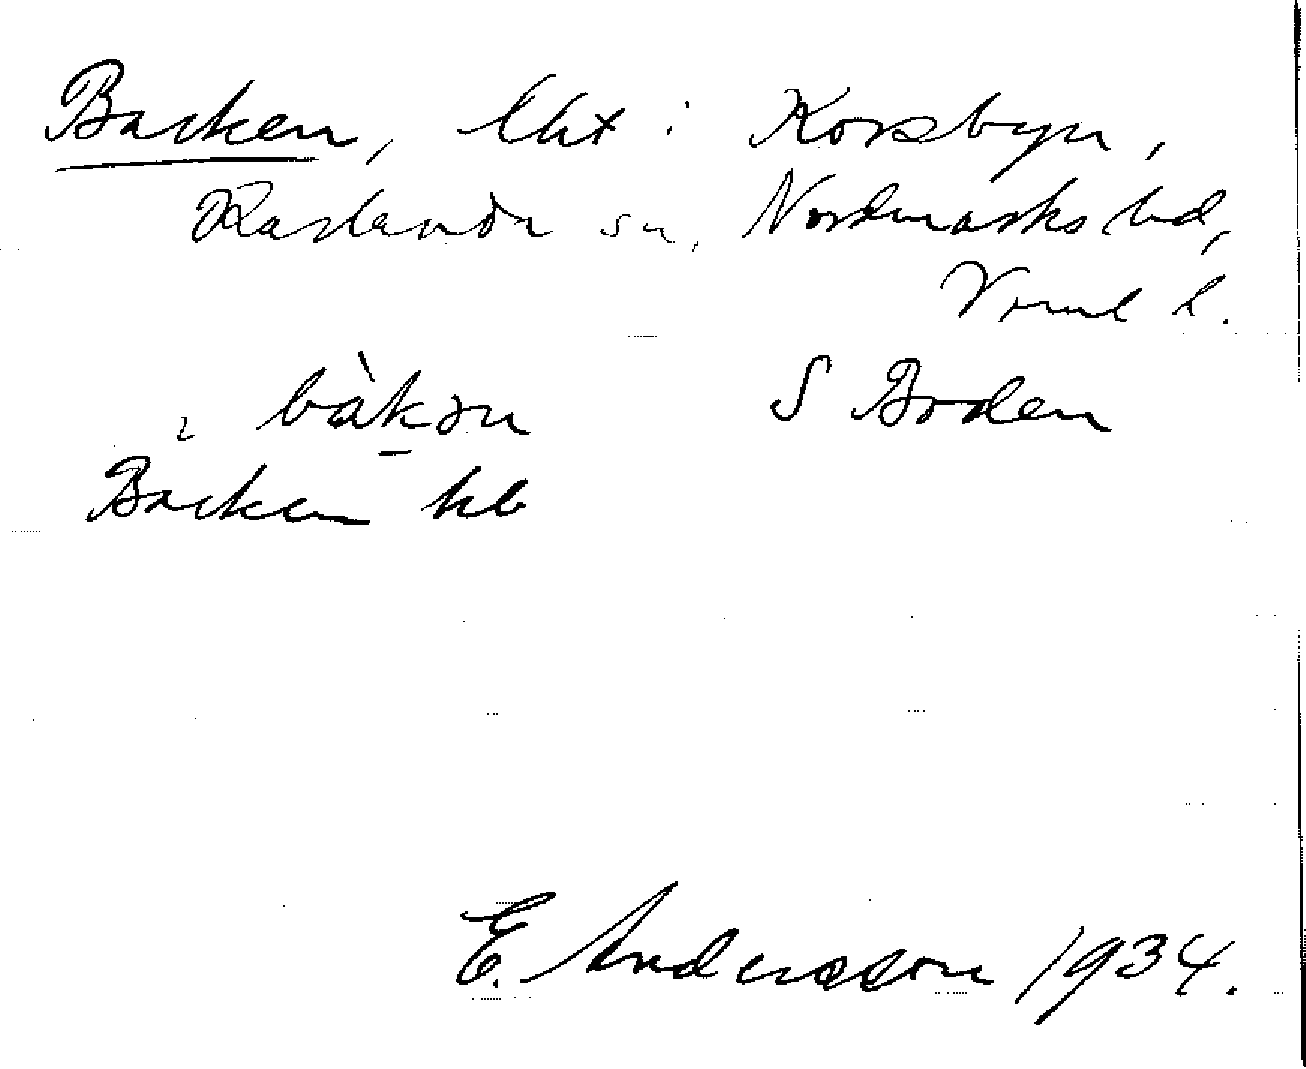 Backen, lht i Korsbyn,
Karlanda sn, Nordmarks hd,
Värml l.
i bàkən S Boden
Backen kb
E. Andersson 1934.